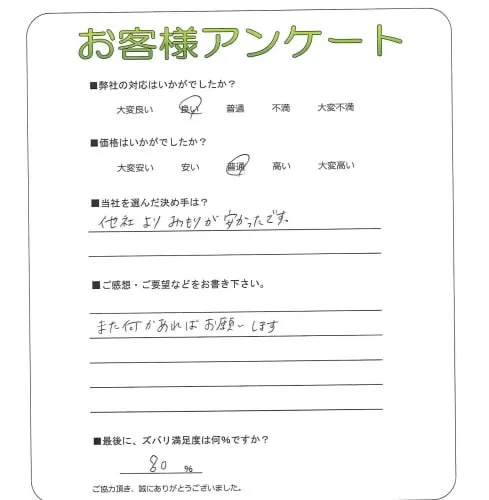 お客様アンケート
■弊社の対応はいかがでしたか？
大変良い 良い 普通 不満 大変不満
■価格はいかがでしたか？
大変安い 安い 普通 高い 大変高い
■当社を選んだ決め手は？
他社よりみつもりが安かったです。
■ご感想・ご要望などをお書き下さい。
また何かあればお願いします
■最後に、ズバリ満足度は何%ですか？
80 %
ご協力頂き、誠にありがとうございました。